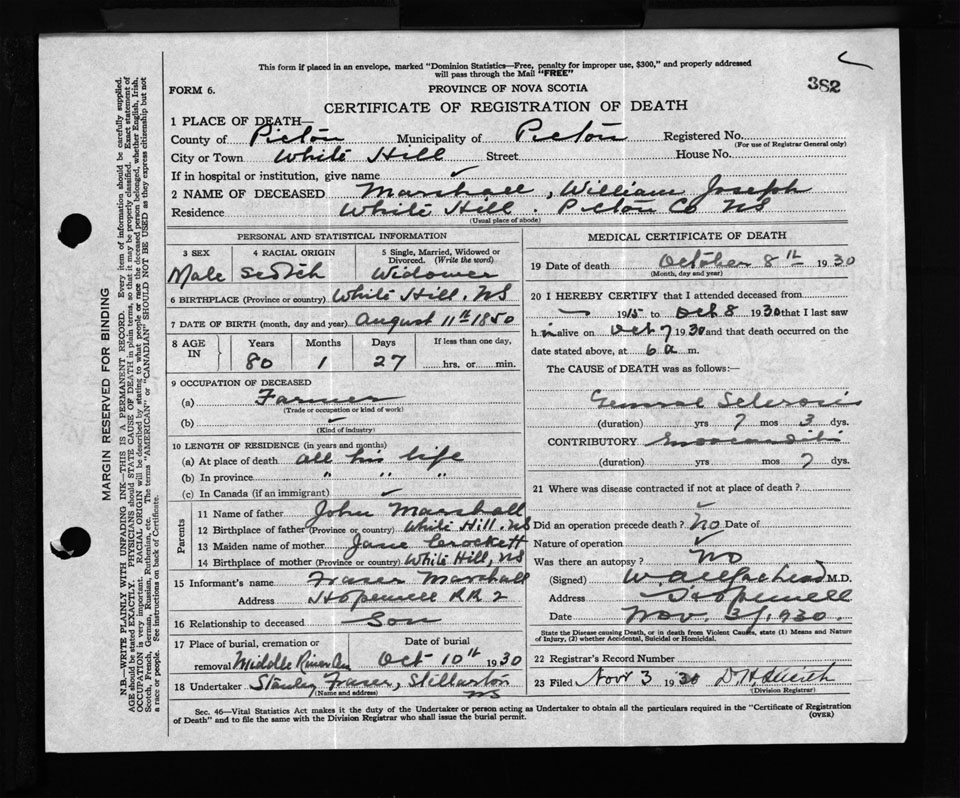 This form if placed in an envelope, marked "Dominion Statistics—Free, penalty for improper use, $300," and properly addressed
will pass through the Mail "FREE"
382
FORM 6.
PROVINCE OF NOVA SCOTIA
CERTIFICATE OF REGISTRATION OF DEATH
1 PLACE OF DEATH—
County of Pictou Municipality of Pictou Registered No.
(For use of Registrar General only)
City or Town White Hill Street House No.
If in hospital or institution, give name ✓
2 NAME OF DECEASED Marshall, William Joseph
Residence White Hill. Pictou Co NS
(Usual place of abode)
PERSONAL AND STATISTICAL INFORMATION
3 SEX 4 RACIAL ORIGIN 5 Single, Married, Widowed or
Divorced. (Write the word)
Male Scotch Widower
6 BIRTHPLACE (Province or country) White Hill, NS
7 DATE OF BIRTH (month, day and year) August 11th 1850
8 AGE IN Years Months Days If less than one day,
80 1 27 hrs. or min.
9 OCCUPATION OF DECEASED
(a) Farmer
(Trade or occupation or kind of work)
(b) ✓
(Kind of industry)
10 LENGTH OF RESIDENCE (in years and months)
(a) At place of death all his life
(b) In province " " "
(c) In Canada (if an immigrant) ✓
Parents
11 Name of father John Marshall
12 Birthplace of father (Province or country) White Hill, NS
13 Maiden name of mother Jane Crockett
14 Birthplace of mother (Province or country) White Hill, NS
15 Informant's name Fraser Marshall
Address Hopewell RR 2
16 Relationship to deceased Son
17 Place of burial, cremation or Date of burial
removal Middle River Oct 10th 1930
18 Undertaker Stanley Fraser, Stellarton
(Name and address) NS
MEDICAL CERTIFICATE OF DEATH
19 Date of death October 8th 1930
(Month, day and year)
20 I HEREBY CERTIFY that I attended deceased from
1915 to Oct 8 1930 that I last saw
h im alive on Oct 7 1930 and that death occurred on the
date stated above, at 6 a m.
The CAUSE of DEATH was as follows:—
General Sclerosis
(duration) yrs 7 mos 3 dys.
CONTRIBUTORY
(duration) yrs mos 7 dys.
21 Where was disease contracted if not at place of death?
✓
Did an operation precede death? No Date of
Nature of operation ✓
Was there an autopsy? No
(Signed) M.D.
Address Hopewell
Date Nov. 3/1930.
State the Disease causing Death, or in death from Violent Causes, state (1) Means and Nature
of Injury, (2) whether Accidental, Suicidal or Homicidal.
22 Registrar's Record Number
23 Filed Novr 3 1930
(Division Registrar)
Sec. 46—Vital Statistics Act makes it the duty of the Undertaker or person acting as Undertaker to obtain all the particulars required in the "Certificate of Registration
of Death" and to file the same with the Division Registrar who shall issue the burial permit. (OVER)
MARGIN RESERVED FOR BINDING
N.B.—WRITE PLAINLY WITH UNFADING INK—THIS IS A PERMANENT RECORD. Every item of information should be carefully supplied.
AGE should be stated EXACTLY. PHYSICIANS should state CAUSE OF DEATH in plain terms, so that it may be properly classified. Exact statement of
OCCUPATION is very important. RACIAL ORIGIN will be described by stating to what people or race the deceased person belonged, whether English, Irish,
Scotch, French, German, Russian, Ruthenian, etc. The terms "AMERICAN" or "CANADIAN" SHOULD NOT BE USED as they express citizenship but not
a race or people. See instructions on back of Certificate.